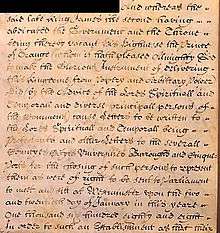 And whereas the
said late King James the second having
abdicated the Government and the Throne
being thereby vacant His Highnesse the Prince
of Orange (whom it hath pleased Almighty God
to make the glorious Instrument of delivering
this Kingdome from Popery and Arbitrary Power)
did by the Advice of the Lords Spirituall and
Temporall and diverse principall persons of
the Commons cause Letters to be written to
the Lords Spirituall and Temporall being
Protestants and other Letters to the severall
Countyes Cityes Universities Burroughs and Cinque
Ports for the chusing of such persons to represent
them as were of right to be sent to Parliament
to meet and sitt at Westminster upon the two
and twentyeth day of January in this yeare
One thousand six hundred eighty and eight
in order to such an Establishment as that their